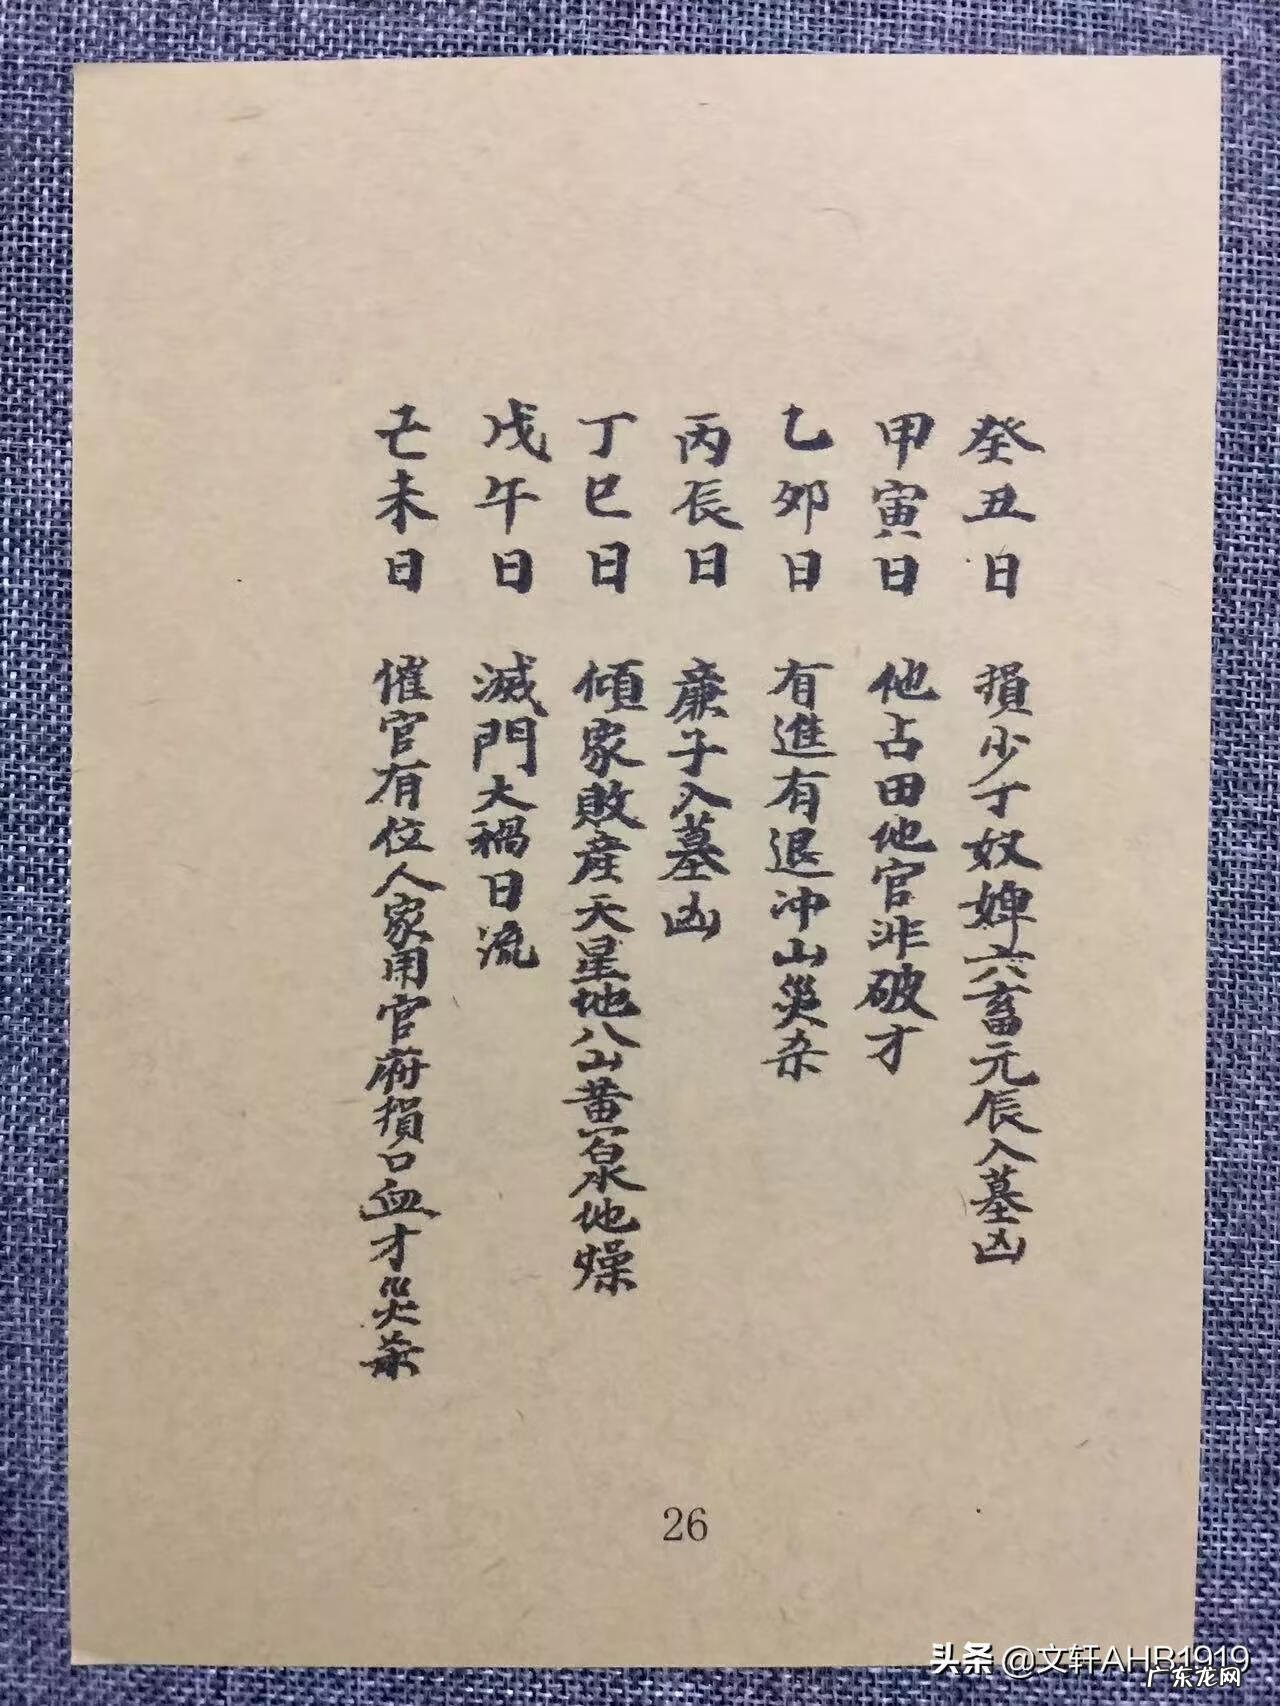 癸丑日 損少丁奴婢六畜元辰入墓凶
甲寅日 他占田地官非破才
乙卯日 有進有退冲山災杀
丙辰日 廉子入墓凶
丁巳日 傾家敗産天星地八山黄泉地燥
戊午日 滅門大禍日流
己未日 催官有位人家用官府損口血才災杀
26
头条 @文轩AHB1919
广东龙网